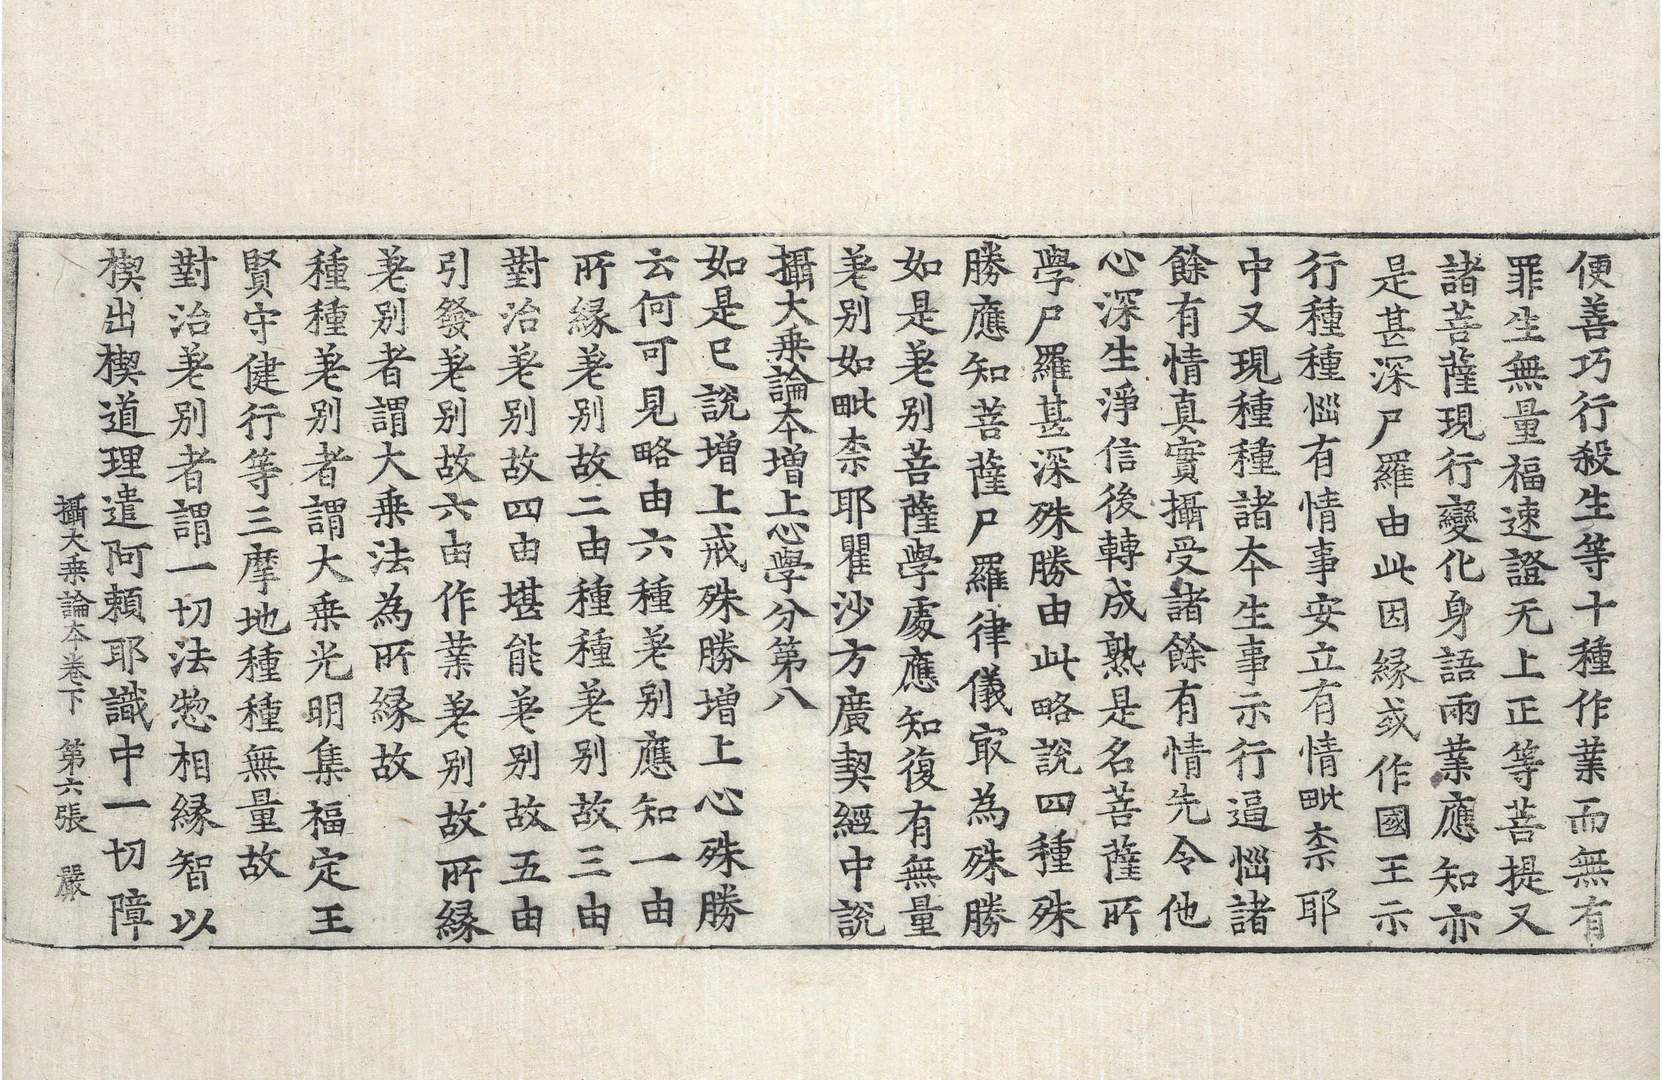 便善巧行殺生等十種作業而無有
罪生無量福速證无上正等菩提又
諸菩薩現行變化身語兩業應知亦
是甚深尸羅由此因縁或作國王示
行種種惱有情事安立有情毗柰耶
中又現種種諸夲生事示行逼惱諸
餘有情真實攝受諸餘有情先令他
心深生淨信後轉成熟是名菩薩所
學尸羅甚深殊勝由此略說四種殊
勝應知菩薩尸羅律儀㝡為殊勝
如是差别菩薩學處應知復有無量
差别如毗柰耶瞿沙方廣契經中説
攝大乗論夲増上心學分第八
如是已說増上戒殊勝増上心殊勝
云何可見略由六種差别應知一由
所縁差别故二由種種差别故三由
對治差别故四由堪能差别故五由
引發差别故六由作業差别故所縁
差别者謂大乗法為所縁故
種種差别者謂大乗光明集福定王
賢守健行等三摩地種種無量故
對治差别者謂一切法惣相縁智以
楔出楔道理遣阿頼耶識中一切障
攝大乗論夲卷下　第六張　嚴